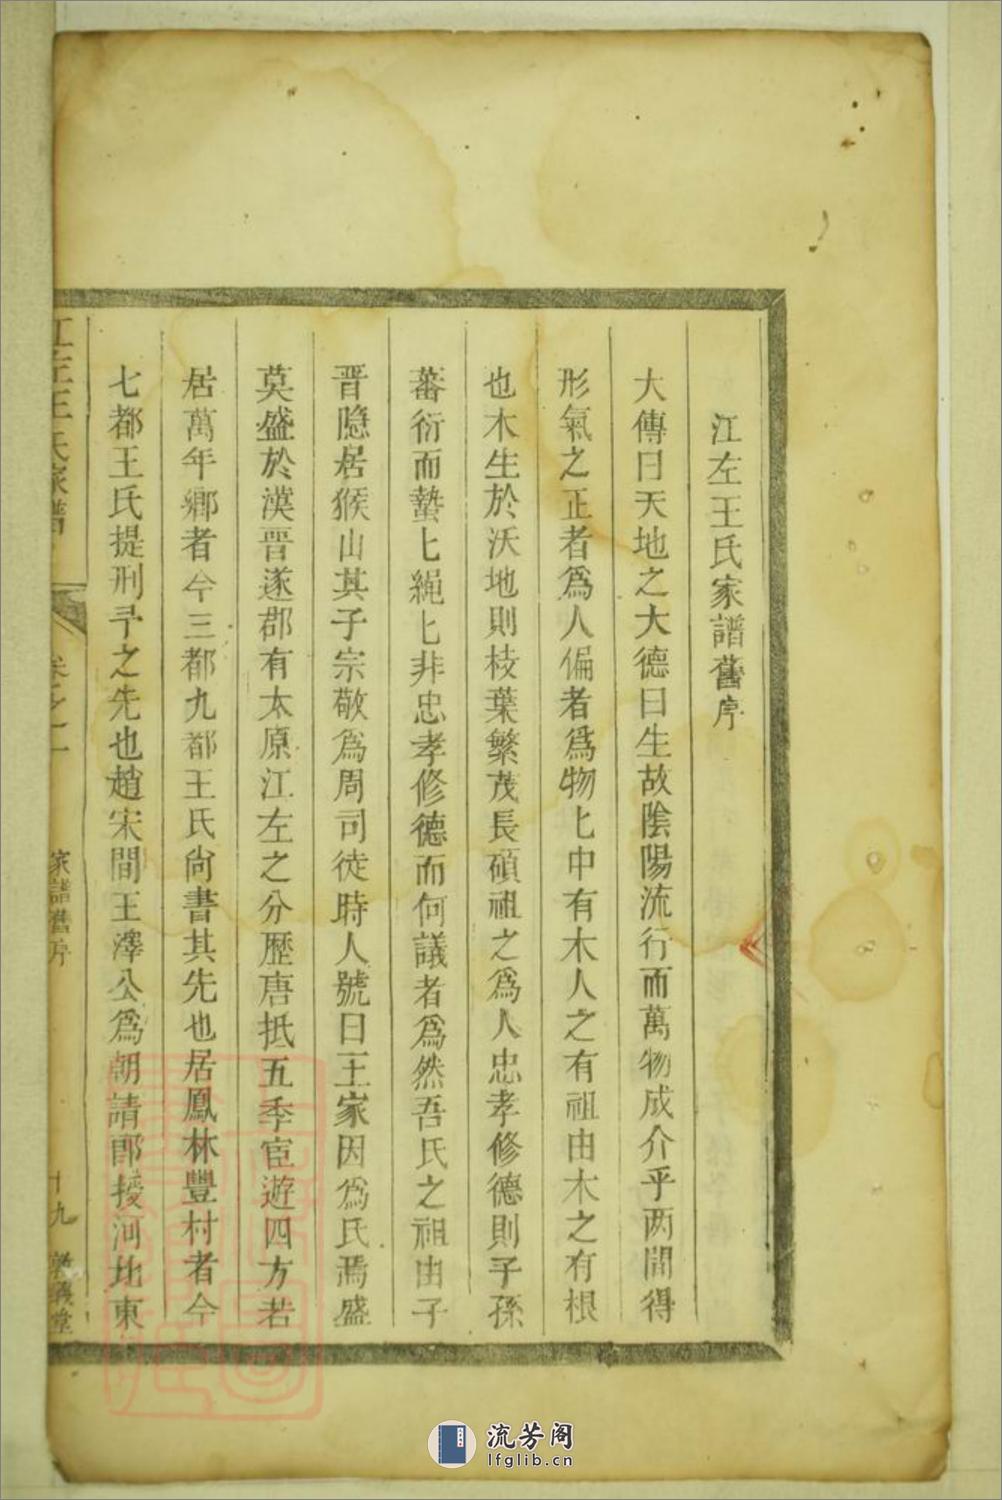 江左王氏家譜舊序
大傳曰天地之大德曰生故陰陽流行而萬物成介乎两間得
形氣之正者爲人偏者爲物匕中有木人之有祖由木之有根
也木生於沃地則枝葉繁茂長碩祖之爲人忠孝修德則子孫
蕃衍而蟄匕繩匕非忠孝修德而何議者爲然吾氏之祖由子
晋隐居猴山其子宗敬爲周司徒時人號曰王家因爲氏焉盛
莫盛於漢晋遂郡有太原江左之分歷唐抵五季宦遊四方若
居萬年鄉者今三都九都王氏尙書其先也居鳳林豐村者今
七都王氏提刑予之先也趙宋間王澤公爲朝請郎授河北東
江左王氏家譜
卷之一
家譜舊序
十九
敦義堂
流芳阁
lfglib.cn